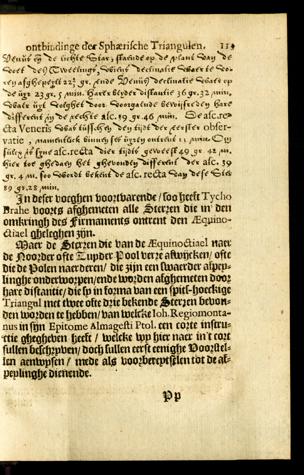 ontbindinge der Sphærische Triangulen. 114
Venus en de lichte Star, staende op de plant van de
voet des Tweelings, wiens declinatie waer te vo-
ren afghepeylt 22½ gr. ende Venus declinatie waer op
de uyr 23 gr. 5 min. Harer beyder distantie 36 gr. 32 min.
Waer uyt volghet door voorgaende bewijs reden hare
different in de rechte asc. 39 gr. 46 min. De asc. rec-
ta Veneris was tusschen den tijdt der eerster obser-
vatie, namentlick binnen ses uyren ontrent 11 min.
sulcx is syne asc. recta dier tijdts geweest 49 gr. 42 m.
hier toe ghedaen het ghevonden different der asc. 39
gr. 4 m. soo wordt bekent de asc. recta van dese Ster
89 gr. 28 min.
In deser voeghen voortvarende / soo heeft Tycho
Brahe voorts afghemeten alle Sterren die in den
omkringh des Firmaments ontrent den Æquino-
ctiael gheleghen zijn.
Maer de Sterren die van de Æquinoctiael naer
de Noorder ofte Zuyder Pool verre afwijcken / ofte
die de Polen naerderen / die zijn een swaerder afpey-
linghe onderworpen / ende worden afghemeten door
hare distantie / die sy in forma van een spits-hoeckige
Triangul met twee ofte drie bekende Sterren bevon-
den worden te hebben / van welcke Ioh. Regiomonta-
nus in sijn Epitome Almagesti Ptol. een corte instru-
ctie ghegheven heeft / welcke wy hier naer in 't cort
sullen beschryven / doch sullen eerst eenighe Voorstel-
len aenwijsen / mede als voorbereytselen tot de af-
peylinghe dienende.
Pp